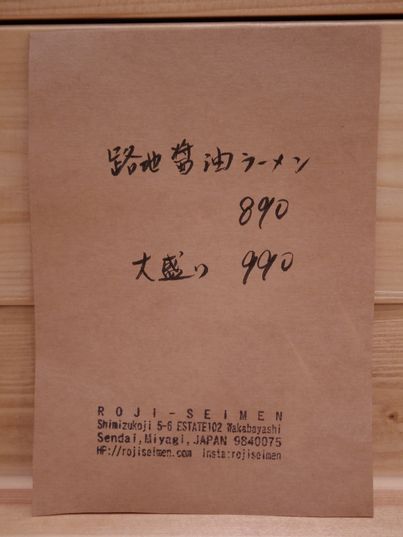 路地醤油ラーメン
890
大盛り 990
ROJI-SEIMEN
Shimizukoji 5-6 ESTATE102 Wakabayashi
Sendai,Miyagi,JAPAN 9840075
HP://rojiseimen.com Insta:rojiseimen